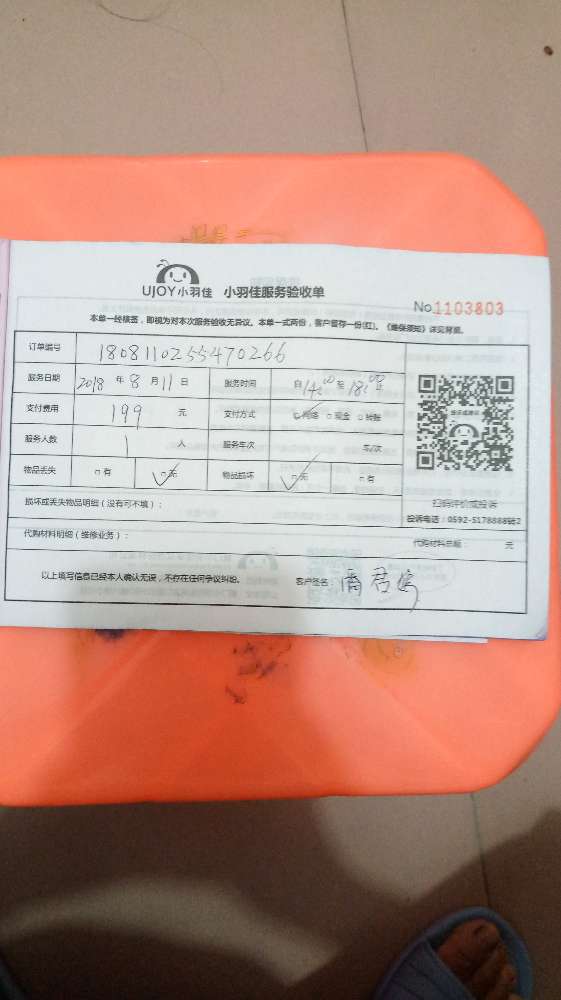 UJOY小羽佳 小羽佳服务验收单
No 1103803
本单一经核签，即视为对本次服务验收无异议。本单一式两份，客户留存一份(红)。《维保须知》详见背面。
订单编号 180811025547026​6
服务日期 2018 年 8 月 11 日 服务时间 自 14:00 至 18:00 止
支付费用 199 元 支付方式 网络 现金 转账
服务人数 1 人 服务车次 车/次
物品丢失 有 无 物品损坏 无 有
扫码评价或投诉
投诉电话：0592-5178888转2
损坏或丢失物品明细（没有可不填）：
代购材料明细（维修业务）： 代购材料总额： 元
以上填写信息已经本人确认无误，不存在任何争议纠纷。 客户签名：